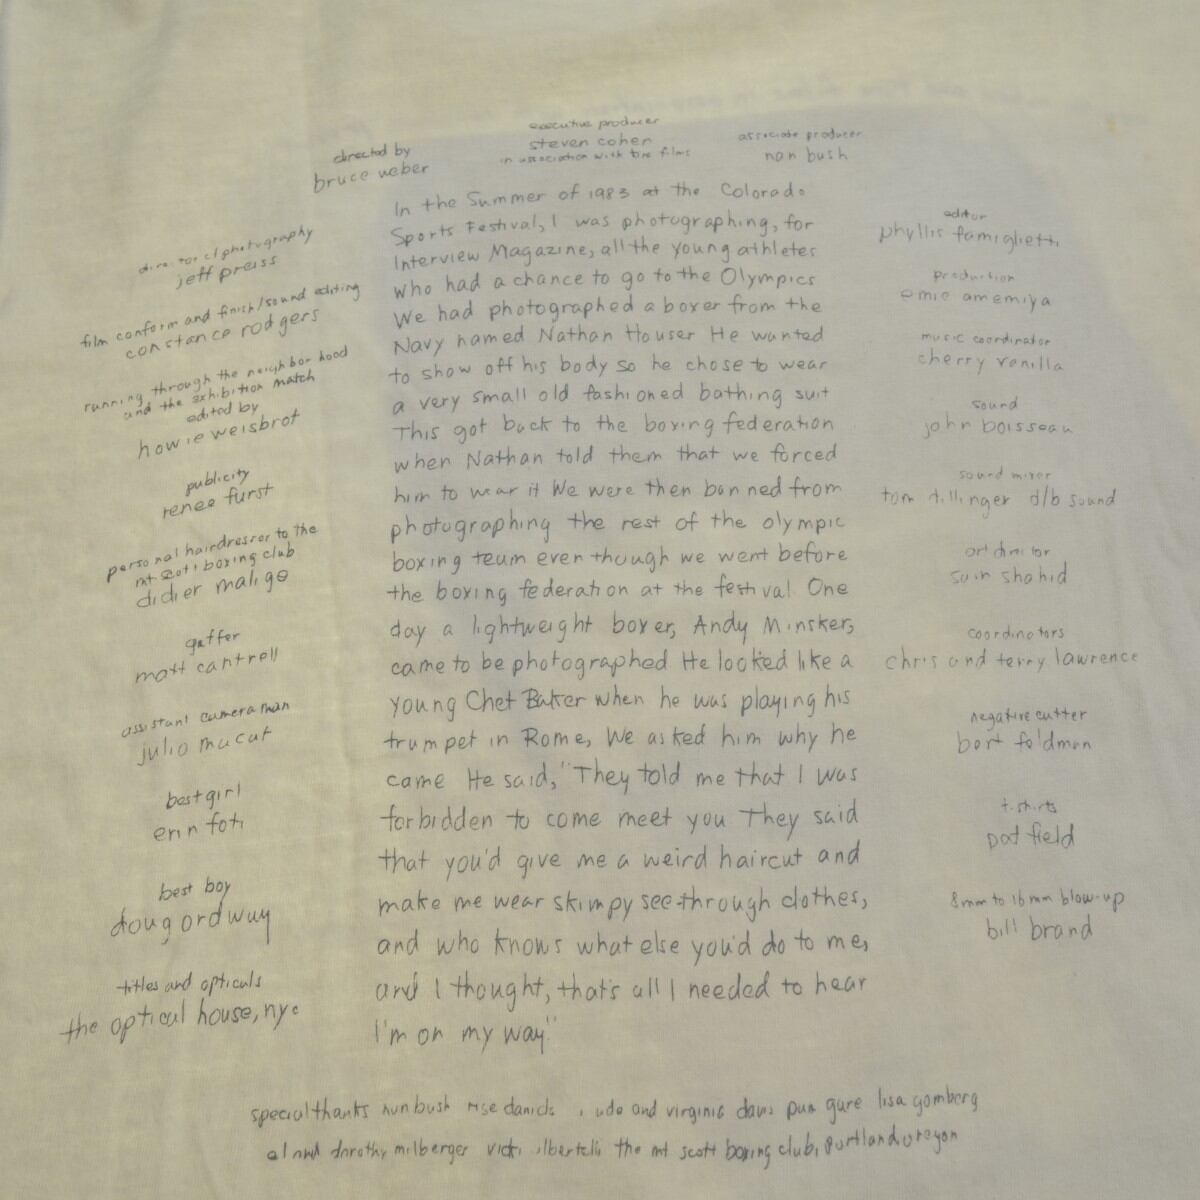 executive producer
steven cohen
in association with tore films
associate producer
nan bush
directed by
bruce weber
In the Summer of 1983 at the Colorado
Sports Festival, I was photographing, for
Interview Magazine, all the young athletes
who had a chance to go to the Olympics
We had photographed a boxer from the
Navy named Nathan Houser He wanted
to show off his body so he chose to wear
a very small old fashioned bathing suit
This got back to the boxing federation
when Nathan told them that we forced
him to wear it We were then banned from
photographing the rest of the olympic
boxing team even though we went before
the boxing federation at the festival One
day a lightweight boxer, Andy Minsker,
came to be photographed He looked like a
young Chet Baker when he was playing his
trumpet in Rome, We asked him why he
came He said, "They told me that I was
forbidden to come meet you They said
that you'd give me a weird haircut and
make me wear skimpy see-through clothes,
and who knows what else you'd do to me,
and I thought, that's all I needed to hear
I'm on my way"
director of photography
jeff preiss
film conform and finish/sound editing
constance rodgers
running through the neighborhood
and the exhibition match
edited by
howie weisbrot
publicity
renee furst
personal hairdresser to the
mt scott boxing club
didier malige
gaffer
matt cantrell
assistant cameraman
julio macat
best girl
erin foti
best boy
doug ordway
titles and opticals
the optical house, nyc
editor
phyllis famiglietti
production
emie amemiya
music coordinator
cherry vanilla
sound
john boisseau
sound mixer
tom dillinger d/b sound
art director
sam shahid
coordinators
chris and terry lawrence
negative cutter
bert feldman
t-shirts
pat field
8mm to 16mm blow-up
bill brand
special thanks nan bush rise daniels and virginia davis gure lisa gomberg
al and dorothy milberger vicki the mt scott boxing club, portland, oregon